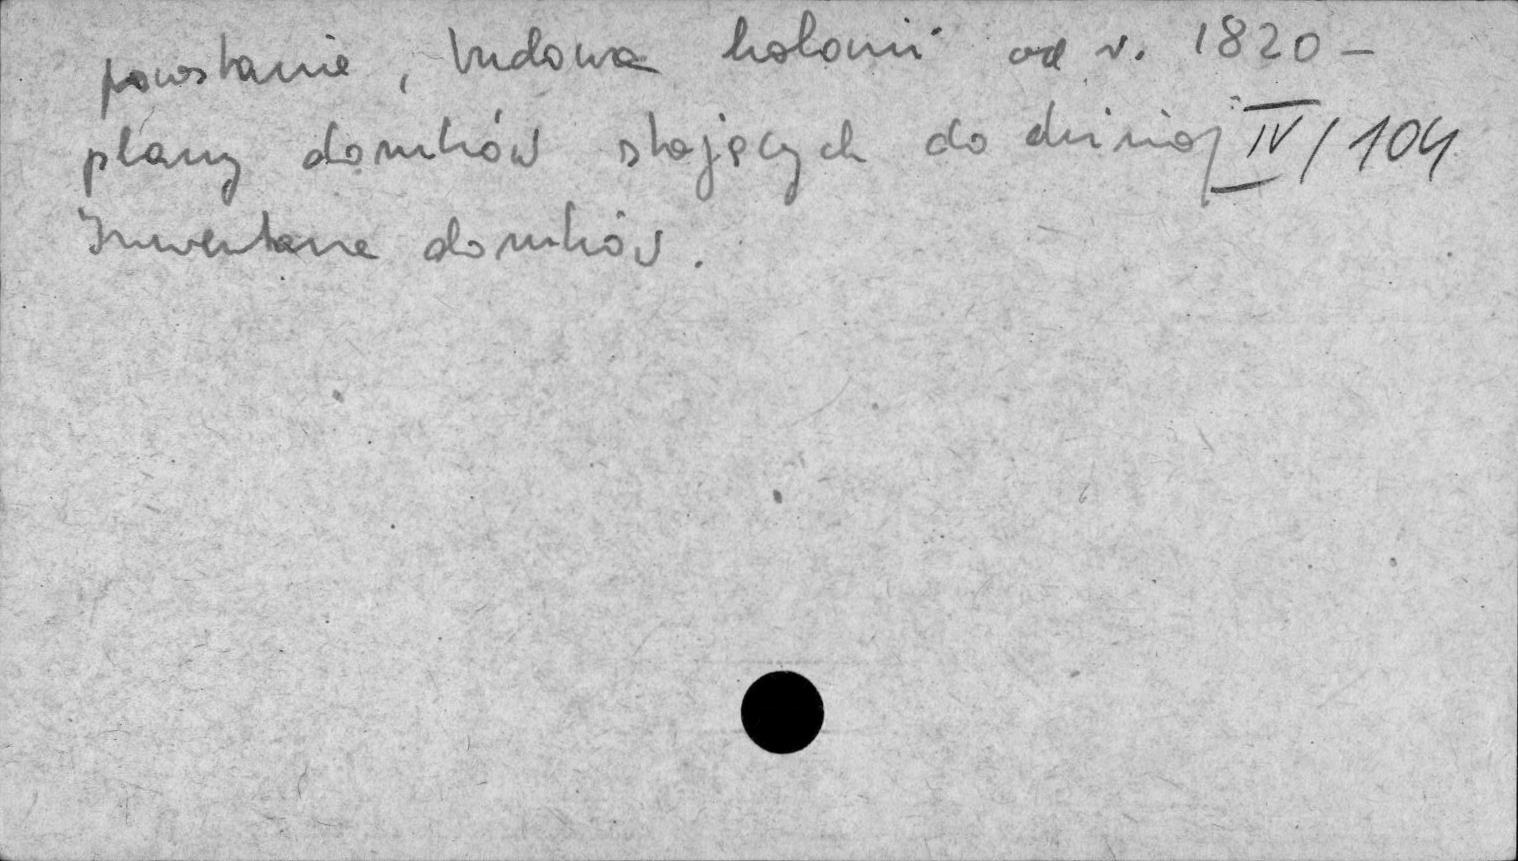 powstanie, budowa kolonii od r. 1820 –
plany domków stojących do dzisiaj IV/104
Inwentarze domków.